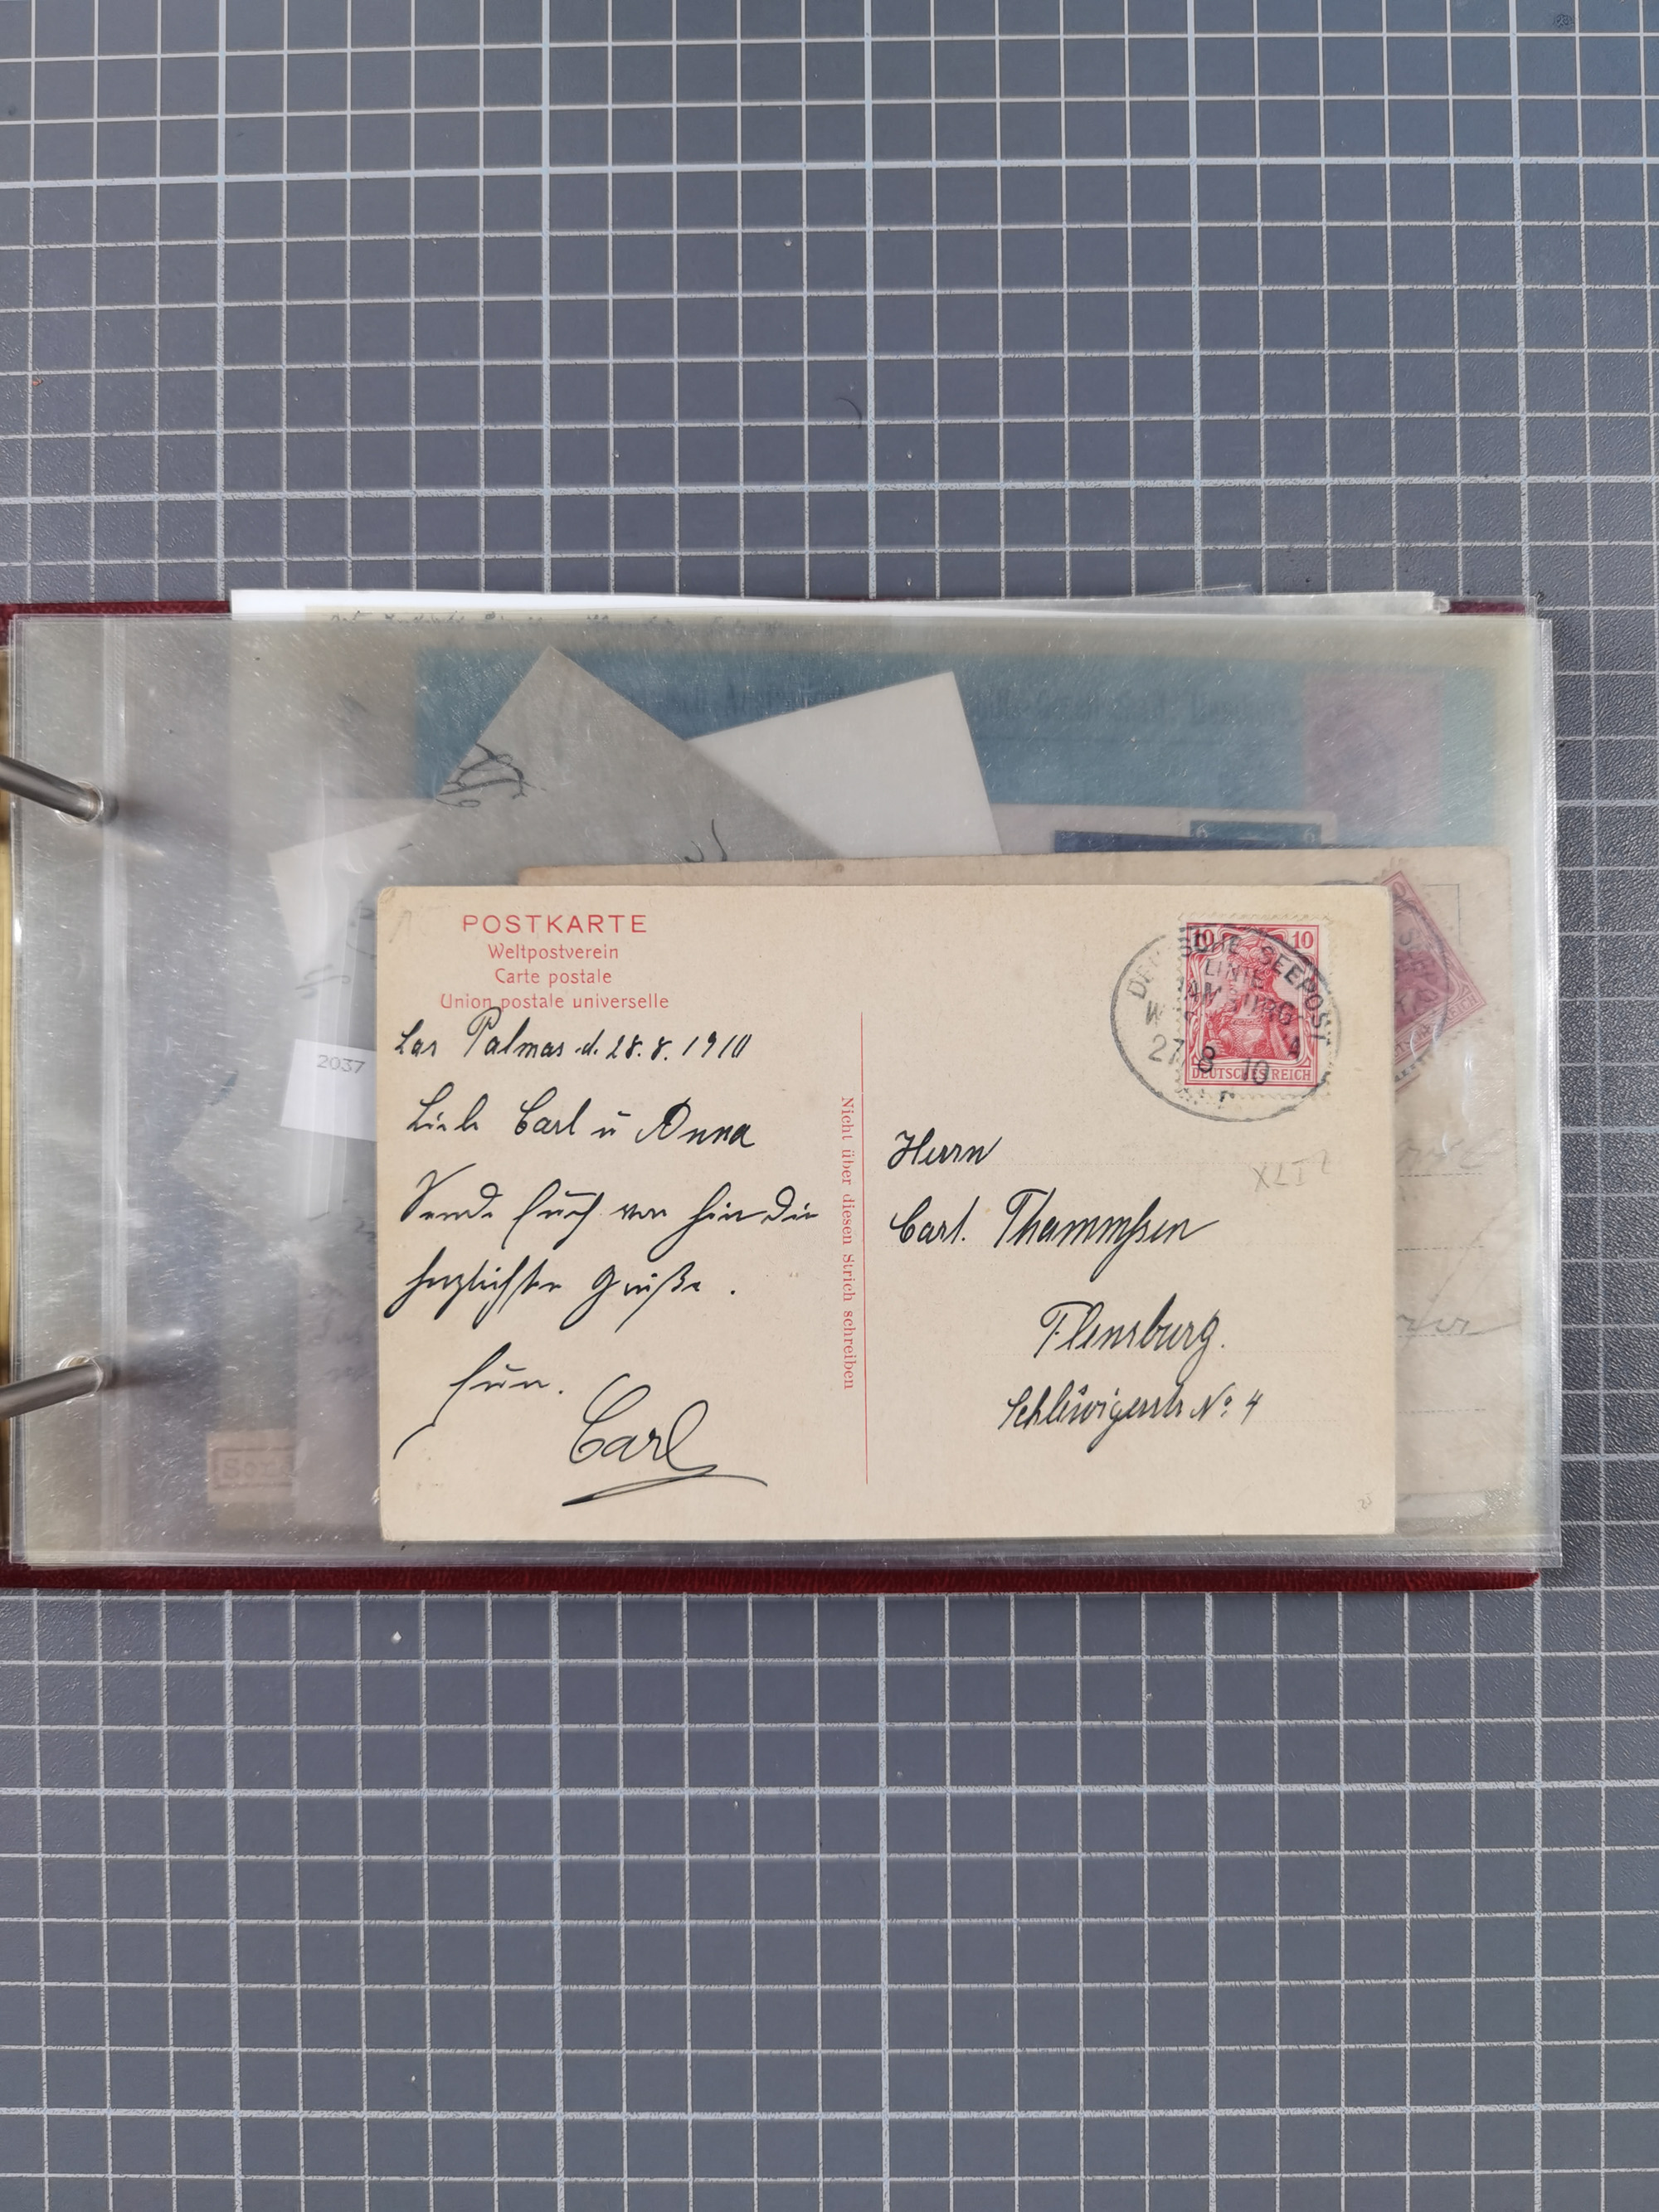 POSTKARTE
Weltpostverein
Carte postale
Union postale universelle
Las Palmas d. 28.8.1910
Liebe Carl u Anna
Sende Euch von hier die
herzlichsten Grüße.
Euer.
Carl
Nicht über diesen Strich schreiben
10 10
DEUTSCHES REICH
DEUTSCHE SEEPOST
LINIE
HAMBURG
27 8 10
Herrn
Carl. Thammsen
Flensburg.
Schleswigerstr No. 4
XLI
2037
6 6